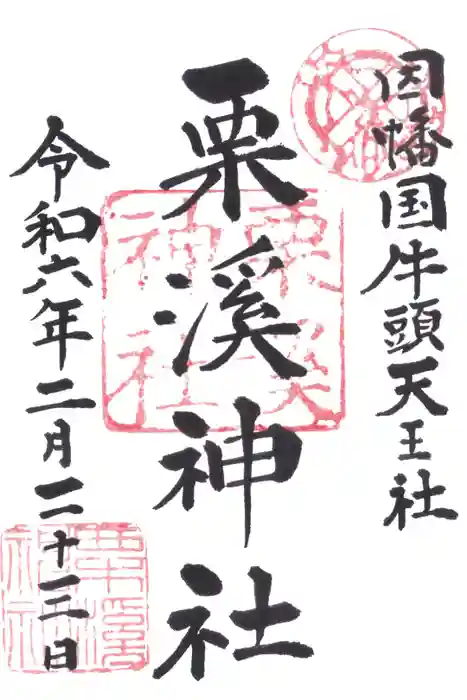 因幡国牛頭天王社
栗溪神社
令和六年二月二十三日
栗溪
神社